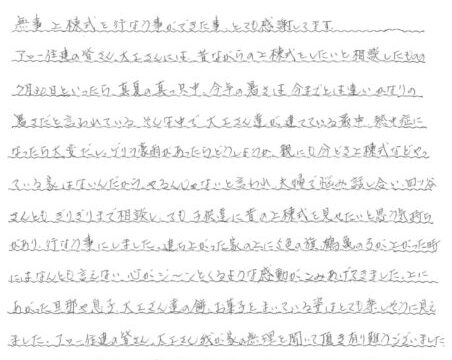 無事上棟式を行なう事ができた事、とても感謝してます。
アツー住建の皆さん、大工さんには、昔ながらの上棟式をしたいと相談したものの
7月30日といったら、真夏の真っ只中、今年の暑さは今までとは違いかなりの
暑さだと言われている。そんな中で、大工さん達が建てている最中、熱中症に
なったら大変だし、ゲリラ豪雨があったらどうしようか、親にも今どき上棟式などやっ
ている家はないんだから、やるんじゃないと言われ、夫婦で悩み話し合い、四ツ谷
さんともぎりぎりまで相談し、でも子供達に昔の上棟式を見せたいと思う気持ち
があり、行なう事にしました。建ち上がった家の上に5色の旗、鶴亀の弓が上がった時
にはなんとも言えない、心がジ〜ンとくるような感動がこみあげてきました。上に
あがった旦那や息子、大工さん達の餅、お菓子をまいている姿はとても楽しそうに見え
ました。アツー住建の皆さん、大工さん我が家の無理を聞いて頂き有り難うございました